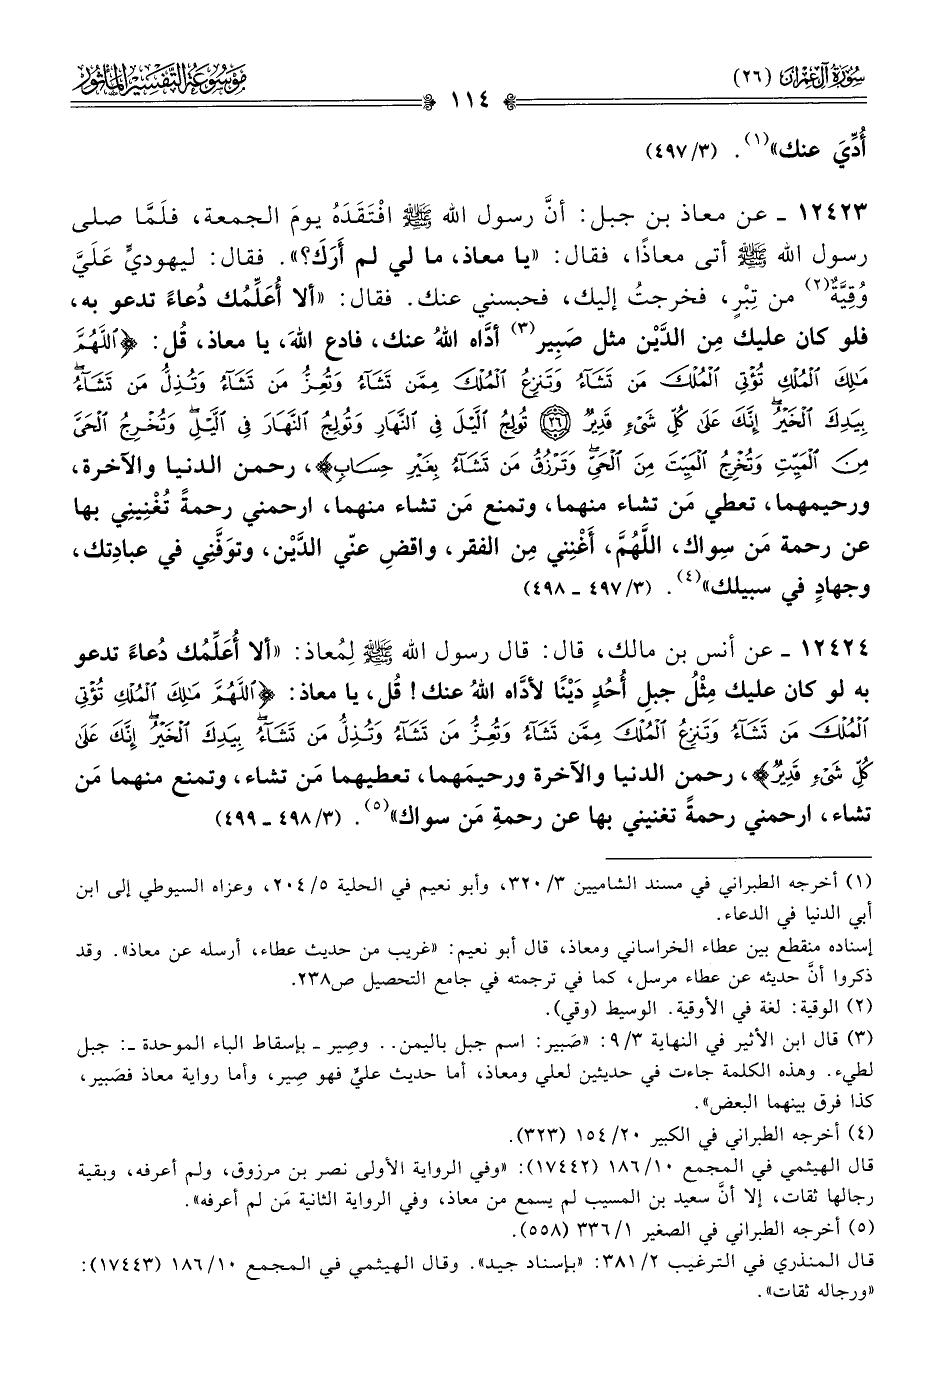 سُورَةُ آل عِمْرَان (٢٦)
مَوْسُوعَةُ التَّفْسِيرِ المَأْثُور
١١٤
أُدِّيَ عنك»(١). (٣/ ٤٩٧)
١٢٤٢٣ ـ عن معاذ بن جبل: أنَّ رسول الله ﷺ افْتَقَدَهُ يومَ الجمعة، فلَمَّا صلى
رسول الله ﷺ أتى معاذًا، فقال: «يا معاذ، ما لي لم أَرَكَ؟». فقال: ليهوديٍّ عَلَيَّ
وُقِيَّةٌ(٢) من تِبْرٍ، فخرجتُ إليك، فحبسني عنك. فقال: «ألا أُعَلِّمُك دُعاءً تدعو به،
فلو كان عليك مِن الدَّيْن مثل صَبِير(٣) أدَّاه اللهُ عنك، فادع اللهَ، يا معاذ، قُل: ﴿ٱللَّهُمَّ
مَٰلِكَ ٱلۡمُلۡكِ تُؤۡتِي ٱلۡمُلۡكَ مَن تَشَآءُ وَتَنزِعُ ٱلۡمُلۡكَ مِمَّن تَشَآءُ وَتُعِزُّ مَن تَشَآءُ وَتُذِلُّ مَن تَشَآءُۖ
بِيَدِكَ ٱلۡخَيۡرُۖ إِنَّكَ عَلَىٰ كُلِّ شَيۡءٖ قَدِيرٞ ٢٦ تُولِجُ ٱلَّيۡلَ فِي ٱلنَّهَارِ وَتُولِجُ ٱلنَّهَارَ فِي ٱلَّيۡلِۖ وَتُخۡرِجُ ٱلۡحَيَّ
مِنَ ٱلۡمَيِّتِ وَتُخۡرِجُ ٱلۡمَيِّتَ مِنَ ٱلۡحَيِّۖ وَتَرۡزُقُ مَن تَشَآءُ بِغَيۡرِ حِسَابٖ﴾، رحمن الدنيا والآخرة،
ورحيمهما، تعطي مَن تشاء منهما، وتمنع مَن تشاء منهما، ارحمني رحمةً تُغْنِينِي بها
عن رحمة مَن سِواك، اللَّهُمَّ، أَغْنِني مِن الفقر، واقضِ عنّي الدَّيْن، وتوَفَّنِي في عبادتِك،
وجهادٍ في سبيلك»(٤). (٣/ ٤٩٧ ـ ٤٩٨)
١٢٤٢٤ ـ عن أنس بن مالك، قال: قال رسول الله ﷺ لِمُعاذ: «ألا أُعَلِّمُك دُعاءً تدعو
به لو كان عليك مِثْلُ جبلِ أُحُدٍ دَيْنًا لأدَّاه اللهُ عنك! قُل، يا معاذ: ﴿ٱللَّهُمَّ مَٰلِكَ ٱلۡمُلۡكِ تُؤۡتِي
ٱلۡمُلۡكَ مَن تَشَآءُ وَتَنزِعُ ٱلۡمُلۡكَ مِمَّن تَشَآءُ وَتُعِزُّ مَن تَشَآءُ وَتُذِلُّ مَن تَشَآءُۖ بِيَدِكَ ٱلۡخَيۡرُۖ إِنَّكَ عَلَىٰ
كُلِّ شَيۡءٖ قَدِيرٞ﴾، رحمن الدنيا والآخرة ورحيمَهما، تعطيهما مَن تشاء، وتمنع منهما مَن
تشاء، ارحمني رحمةً تغنيني بها عن رحمةِ مَن سواك»(٥). (٣/ ٤٩٨ ـ ٤٩٩)
(١) أخرجه الطبراني في مسند الشاميين ٣/ ٣٢٠، وأبو نعيم في الحلية ٥/ ٢٠٤، وعزاه السيوطي إلى ابن
أبي الدنيا في الدعاء.
إسناده منقطع بين عطاء الخراساني ومعاذ، قال أبو نعيم: «غريب من حديث عطاء، أرسله عن معاذ». وقد
ذكروا أنَّ حديثه عن عطاء مرسل، كما في ترجمته في جامع التحصيل ص٢٣٨.
(٢) الوقية: لغة في الأوقية. الوسيط (وقي).
(٣) قال ابن الأثير في النهاية ٣/ ٩: «صَبير: اسم جبل باليمن.. وصِير ـ بإسقاط الباء الموحدة ـ: جبل
لطيء. وهذه الكلمة جاءت في حديثين لعلي ومعاذ، أما حديث عليٍّ فهو صِير، وأما رواية معاذ فصَبير،
كذا فرق بينهما البعض».
(٤) أخرجه الطبراني في الكبير ٢٠/ ١٥٤ (٣٢٣).
قال الهيثمي في المجمع ١٠/ ١٨٦ (١٧٤٤٢): «وفي الرواية الأولى نصر بن مرزوق، ولم أعرفه، وبقية
رجالها ثقات، إلا أنَّ سعيد بن المسيب لم يسمع من معاذ، وفي الرواية الثانية مَن لم أعرفه».
(٥) أخرجه الطبراني في الصغير ١/ ٣٣٦ (٥٥٨).
قال المنذري في الترغيب ٢/ ٣٨١: «بإسناد جيد». وقال الهيثمي في المجمع ١٠/ ١٨٦ (١٧٤٤٣):
«ورجاله ثقات».